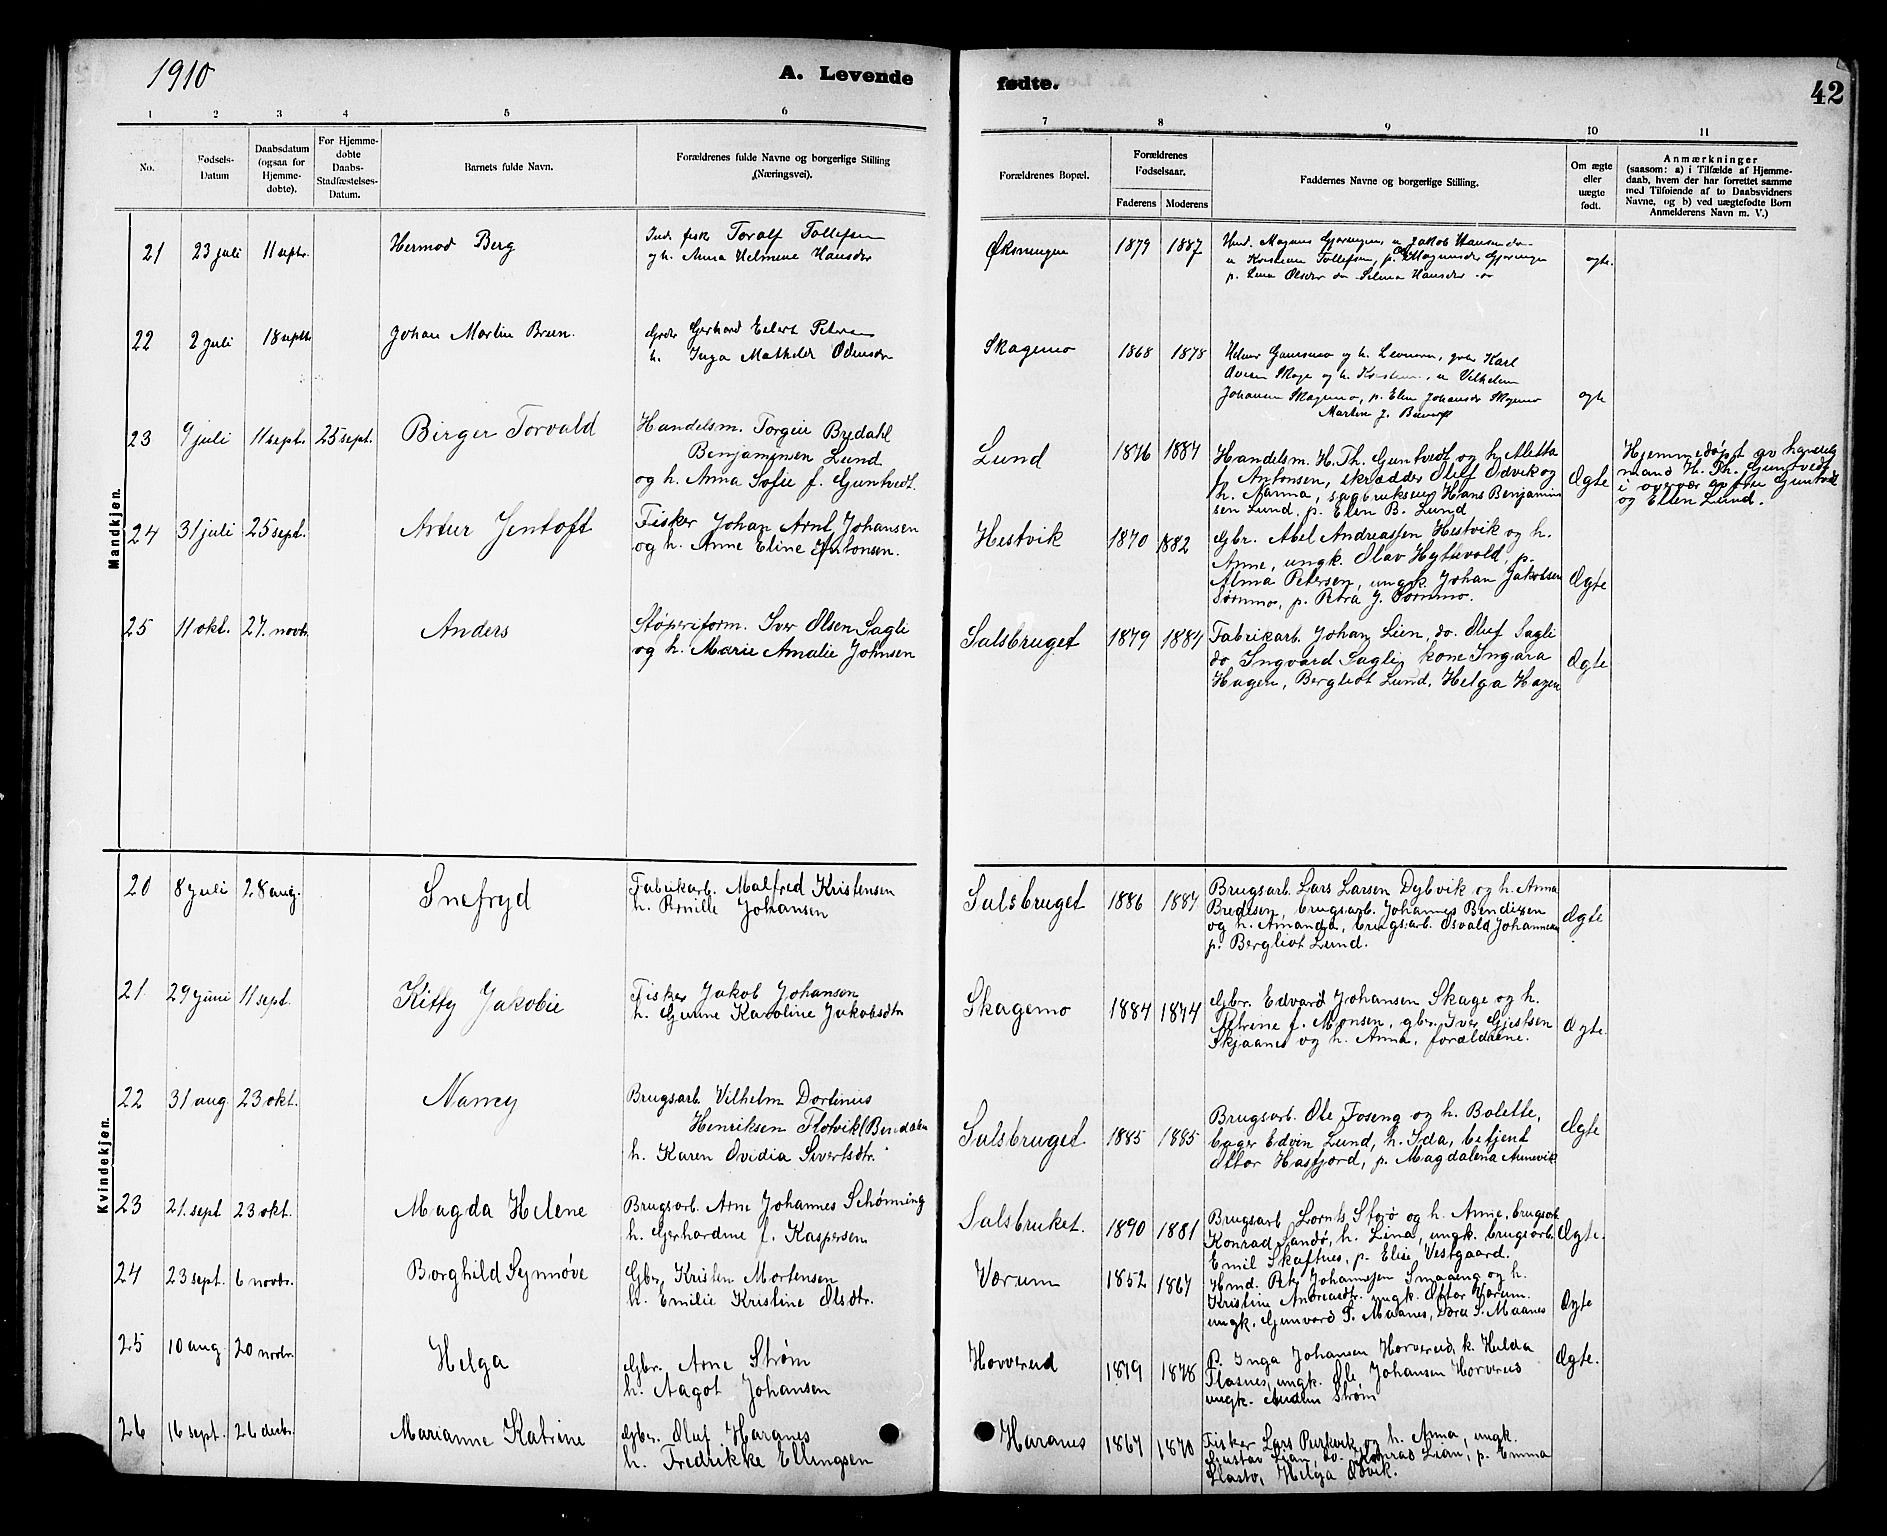 1910
A. Levende
fødte.
42
1 2 3 4 5 6 7 8 9 10 11
No.
Fødsels-
Datum
Daabsdatum
(ogsaa for
Hjemme-
døbte).
For Hjemme-
døbte
Daabs-
Stadfæstelses-
Datum.
Barnets fulde Navn.
Forældrenes fulde Navne og borgerlige Stilling
(Næringsvei).
Forældrenes Bopæl.
Forældrenes
Fødselsaar.
Faderens Moderens
Faddernes Navne og borgerlige Stilling.
Om ægte
eller
uægte
født.
Anmærkninger
(saasom: a) i Tilfælde af Hjemme-
daab, hvem der har forrettet samme
med Tilføiende af to Daabsvidners
Navne, og b) ved uægtefødte Børn
Anmelderens Navn m. V.)
Mandkjøn.
21 23 juli 11 septr. Hermod Berg
Ind. fisk Toralf Tollefsen
og h. Anna Helmine Hansdtr
Øksningen 1879 1887
ægte.
22 2 juli 18 septb Johan Martin Brun.
Gbr Gerhard Eilert Petersen
h. Inga Mathilde Odinsdtr
Skagemo 1868 1878
Johansen Skagemo, p. Elen Johansdtr Skagemo
ægte
23 9 juli 11 sept. 25 sept. Birger Torvald
Handelsm. Torgeir Bydahl
Benjaminsen Lund
og h. Anna Sofie f. Guntvedt.
Lund 1876 1887
Handelsm. H. Th. Guntvedt og h. Aletta
f. Antonsen, skrædder Oluf Odvik og
h. Nanna, sagbrukseier Hans Benjamin
sen Lund, p. Elen B. Lund
Ægte
Hjemmedøpt av handels
mand H. Th. Guntvedt
i overvær av fru Guntvedt
og Ellen Lund.
24 31 juli 25 sept. Artur Jentoft
Fisker Johan Arnt Johansen
og h. Anne Eline Antonsen.
Hestvik 1870 1882
Gbr. Abel Andreassen Hestvik og h.
Anne, ungk. Olav Hyttevold, p.
Alma Petersen, ungk. Johan Jakobsen
Sørnmo, p. Petra J. Sørnmo.
Ægte
25 11 okt. 27. novbr. Anders
Støperiform. Iver Olsen Sagli
og h. Marie Amalie Johnsen
Salsbruget 1879 1884
Fabrikarb. Johan Lien, do. Oluf Sagli
do Ingvard Sagli, kone Ingara
Hagen, Bergliot Lund, Helga Hagen
Ægte
Kvindekjøn.
20 8 juli 28 aug. Snefryd
Fabrikarb. Malfred Kristensen
h. Pernille Johansen
Salsbruget 1886 1887
Brugsarb. Lars Larsen Dybvik og h. Anna
Bredesen, brugsarb. Johannes Bendixen
og h. Amanda, brugsarb. Osvald Johannesen
p. Bergliot Lund.
Ægte
21. 29 juni 11 sept. Kitty Jakobie
Fisker Jakob Johansen
h. Gunne Karoline Jakobsdtr
Skagemo 1884 1874
Gbr. Edvard Johansen Skage og h.
Petrene f. Monsen, gbr. Iver Gjertsen
Skjaanes og h. Anna, forældrene.
Ægte.
22 31 aug 23 okt. Nancy
Brugsarb Vilhelm Dortinus
Henriksen Flotvik (Bindalen
h. Karen Ovidia Sivertsdtr.
Salsbruget 1885 1885
Brugsarb. Ole Foseng og h. Bolette,
bager Edvin Lund, h. Ida, betjent
Ottar Hasfjord, p. Magdalena Aunevik
Ægte
23 21. sept 23 okt. Magda Helene
Brugsarb. Arne Johannes Schønning
h. Gerhardine f. Kaspersen
Salsbruket. 1890 1881
Brugsarb Lornts Storø og h. Anne, brugsarb.
Konrad Sandø, h. Lina, ungk. brugsarb.
Emil Skaftnes, p. Elise Vestgaard.
Ægte.
24 23 sept. 6 novbr. Borghild Synnøve
Gbr. Kristen Mortensen
h. Emilie Kristine Olsdtr.
Værum 1852 1867
Hmd. Petr. Johannesen Smaaeng og h.
Kristine Andreasdtr. ungk. Ottar Værum.
ungk. Gunvard P. Maanes, Dora P. Maanes
Ægte
25 10 aug 20 novbr. Helga
Gbr. Arne Strøm
h. Aagot Johansen
Hovvereid 1879 1878
P. Inga Johansen Horvereid, k. Helda
Flasnes, ungk. Ole Johansen Horvereid
ungk. Audun Strøm
Ægte.
26 16 sept. 26 decbr. Marianne Katrine
Gbr. Oluf Haranes
h. Fredrikke Ellingsen
Haranes 1867 1870
Fisker Lars Purkvik og h. Anna, ungk.
Gustav Lian, do. Konrad Lian, p. Emma
Flasto, Helga Odvik.